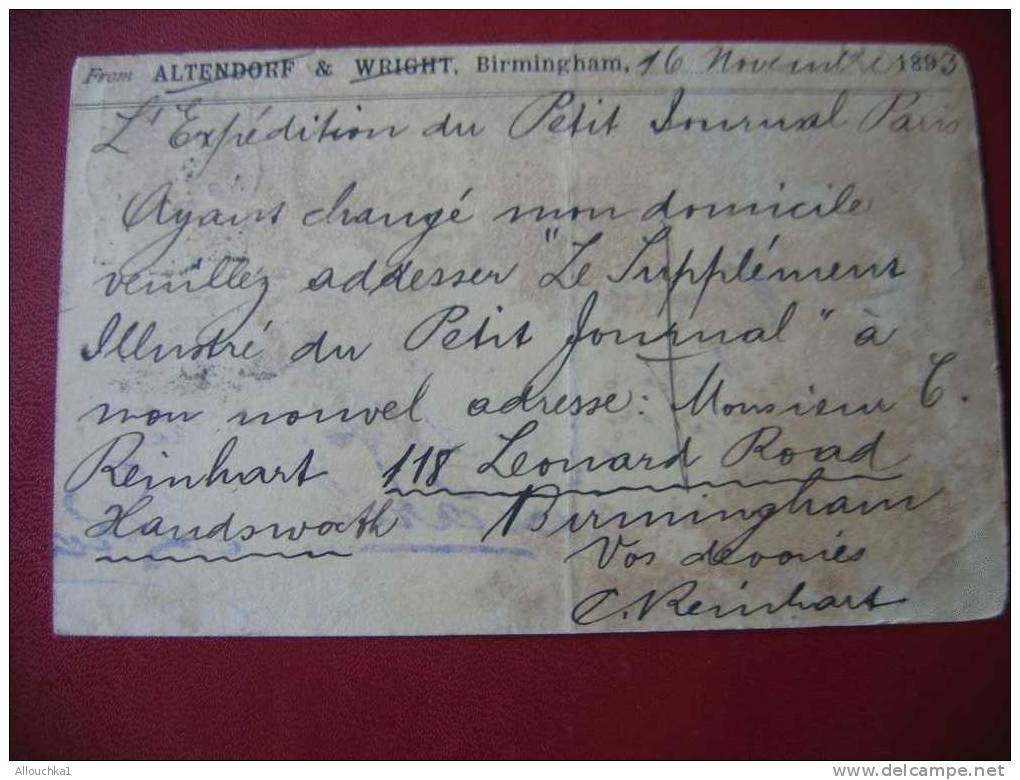 From ALTENDORF & WRIGHT, Birmingham, 16 Novembre 1893
L'Expédition du Petit Journal Paris
Ayant changé mon domicile
veuillez addresser "Le Supplément
Illustré du Petit Journal" à
mon nouvel adresse: Monsieur C.
Reinhart 118 Leonard Road
Handsworth Birmingham
Vos devoués
C. Reinhart
Allouchka1
delcampe.net